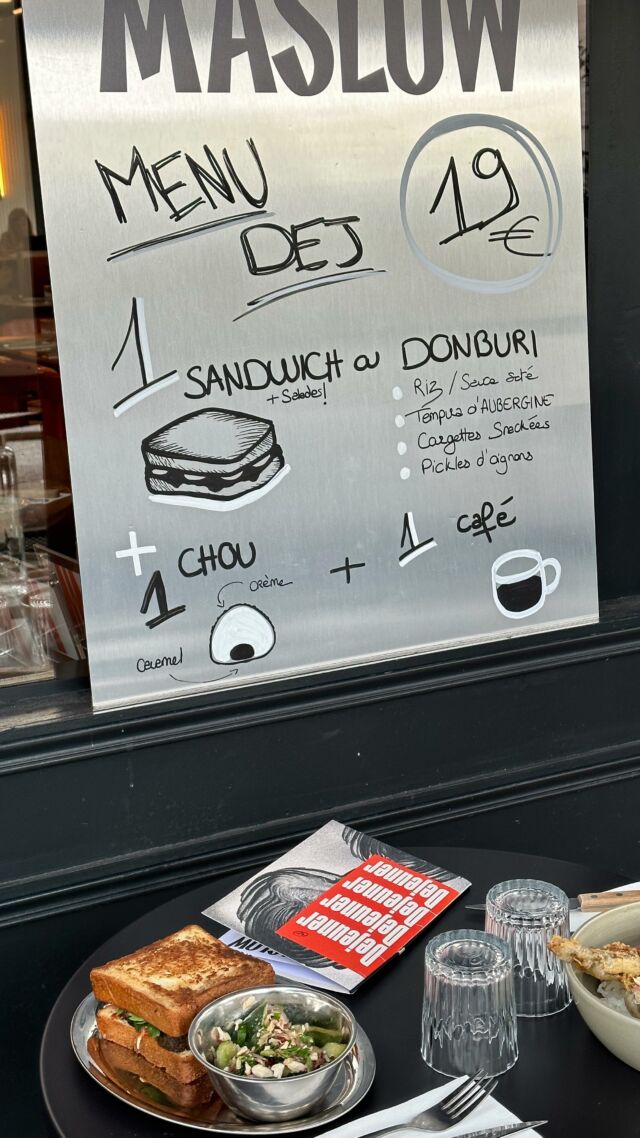 MASLOW
MENU
DEJ
19 €
1 SANDWICH ou DONBURI
+ Salades!
Riz / Sauce saté
Tempura d'AUBERGINE
Courgettes Snackées
Pickles d'oignons
+ 1 CHOU + 1 café
crème
caramel
Dejeuner
Dejeuner
Dejeuner
Dejeuner